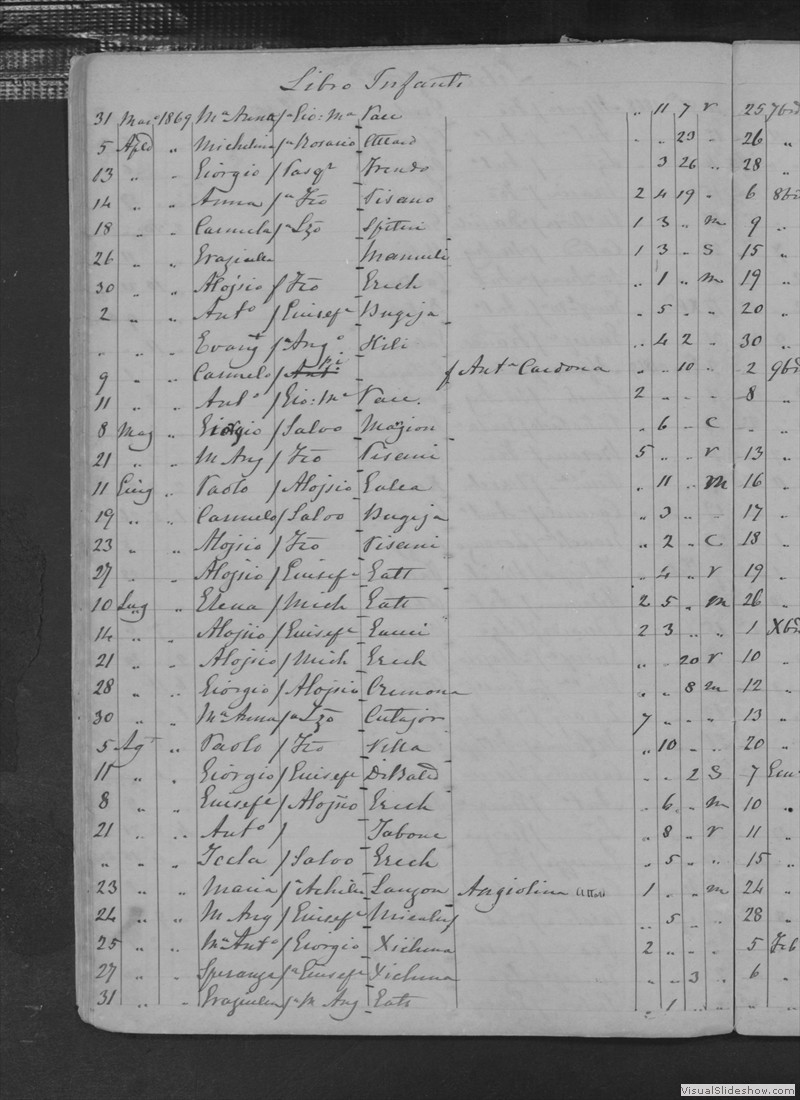 Libro Infanti
31 Mar. 1869 Ma Anna / Gio: Ma Pace " 11 7 V 25 7b
5 Aple " Michelina / Rosario Attard " " 23 " 26 "
13 " " Giorgio / Pasqe Frendo 3 26 " 28 "
14 " " Anna / Fco Pisano 2 4 19 " 6 8b
18 " " Carmela / Lzo Spiteri 1 3 " m 9 "
26 " " Graziulla Mamuli 1 3 " S 15 "
30 " " Alojsio / Fco Grech " 1 " m 19 "
2 " " Anto / Giusepe Bugeja " 5 " " 20 "
" " " Evangta / Ango Hili " 4 2 " 30 "
9 " " Carmelo / f Anta Cardona " " 10 " 2 9b
11 " " Anto / Gio: Ma Pace. 2 " " " 8 "
8 Mag " Giorgio / Salvo Magion " 6 " C " "
21 " " M Ang / Fco Pisani 5 " " V 13 "
11 Giug " Paolo / Alojsio Galea " 11 " m 16 "
19 " " Carmelo / Salvo Bugeja " 3 " " 17 "
23 " " Alojsio / Fco Pisani " 2 " C 18 "
27 " " Alojsio / Giusepe Gatt " 4 " V 19 "
10 Lug " Elena / Mich Gatt 2 5 " m 26 "
14 " " Alojsio / Giusepe Gauci 2 3 " " 1 Xb
21 " " Alojsio / Mich Grech " " 20 V 10 "
28 " " Giorgio / Alojsio Cremona " " 8 m 12 "
30 " " Ma Anna / Lzo Cutajar 7 " " " 13 "
5 Agt " Paolo / Fco Vella " 10 " " 20 "
11 " " Giorgio / Giusepe DiBald " " 2 S 7 Gen
8 " " Giusepe / Alojsio Grech " 6 " m 10 "
21 " " Anto / Tabone " 8 " V 11 "
" " " Tecla / Salvo Grech " 5 " " 15 "
23 " " Maria / Achille Sauzon Angiolina 1 " " m 24 "
24 " " M Ang / Giusepe Micallef " 5 " " 28 "
25 " " Ma Anto / Giorgio Xichuna 2 " " " 5 Feb
27 " " Speranza / Giusepe Xichuna " " 3 " 6 "
31 " " Graziulla / M Ang Gatt " 1 " "
VisualSlideshow.com